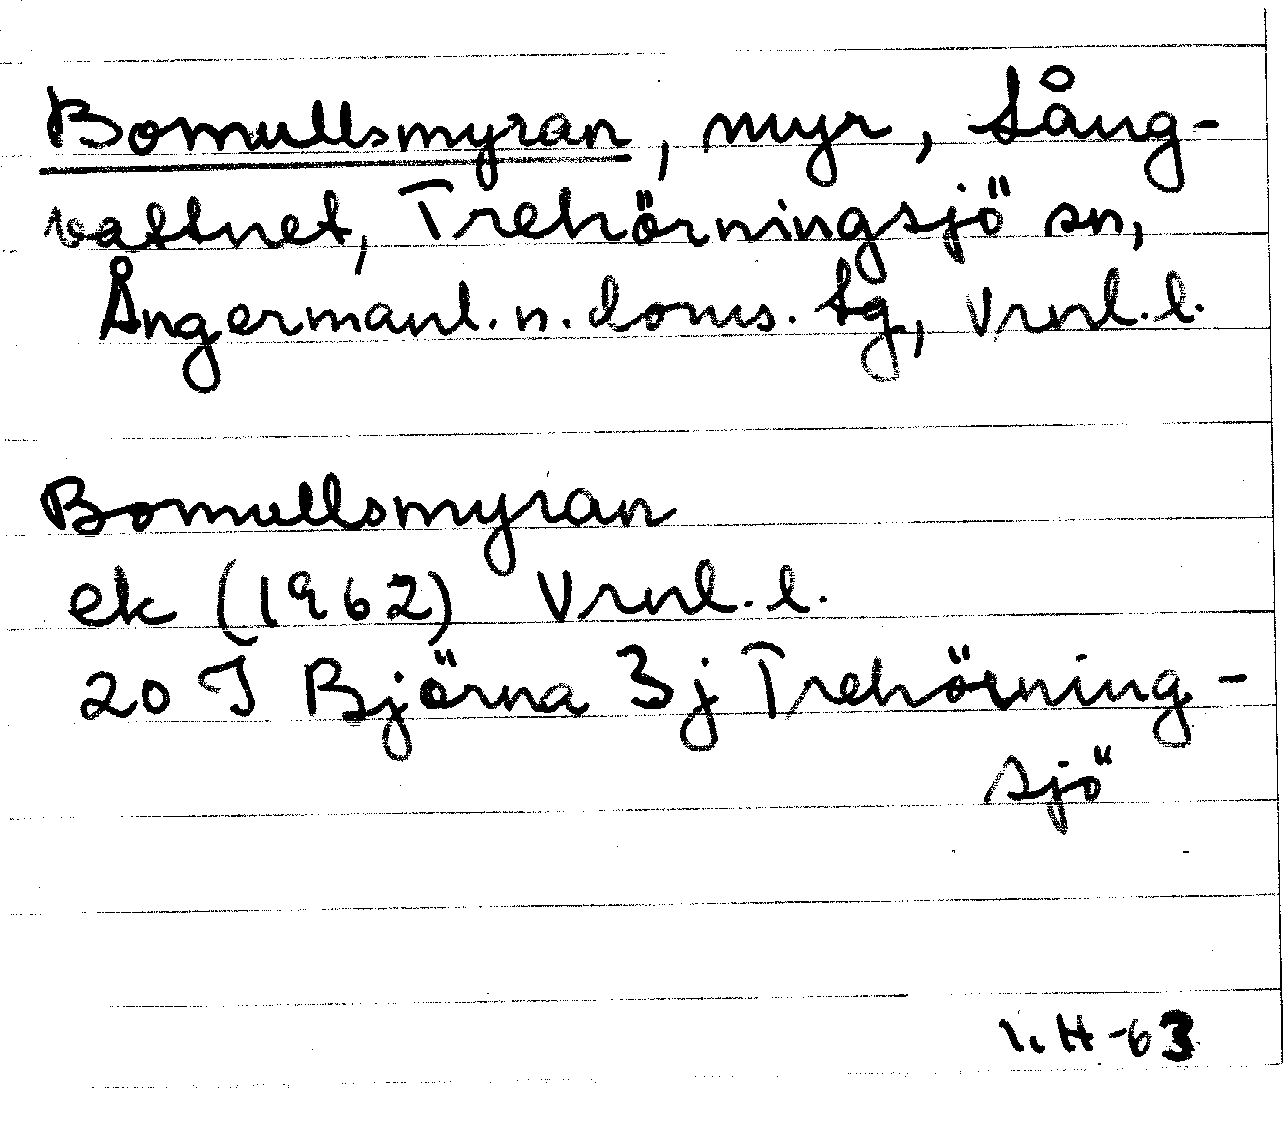 Bomullsmyran, myr, Lång-
vattnet, Trehörningsjö sn,
Ångermanl. n. doms. tg, Vrnl. l.
Bomullsmyran
ek (1962) Vrnl. l.
20 I Björna 3j Trehörning-
sjö
-63